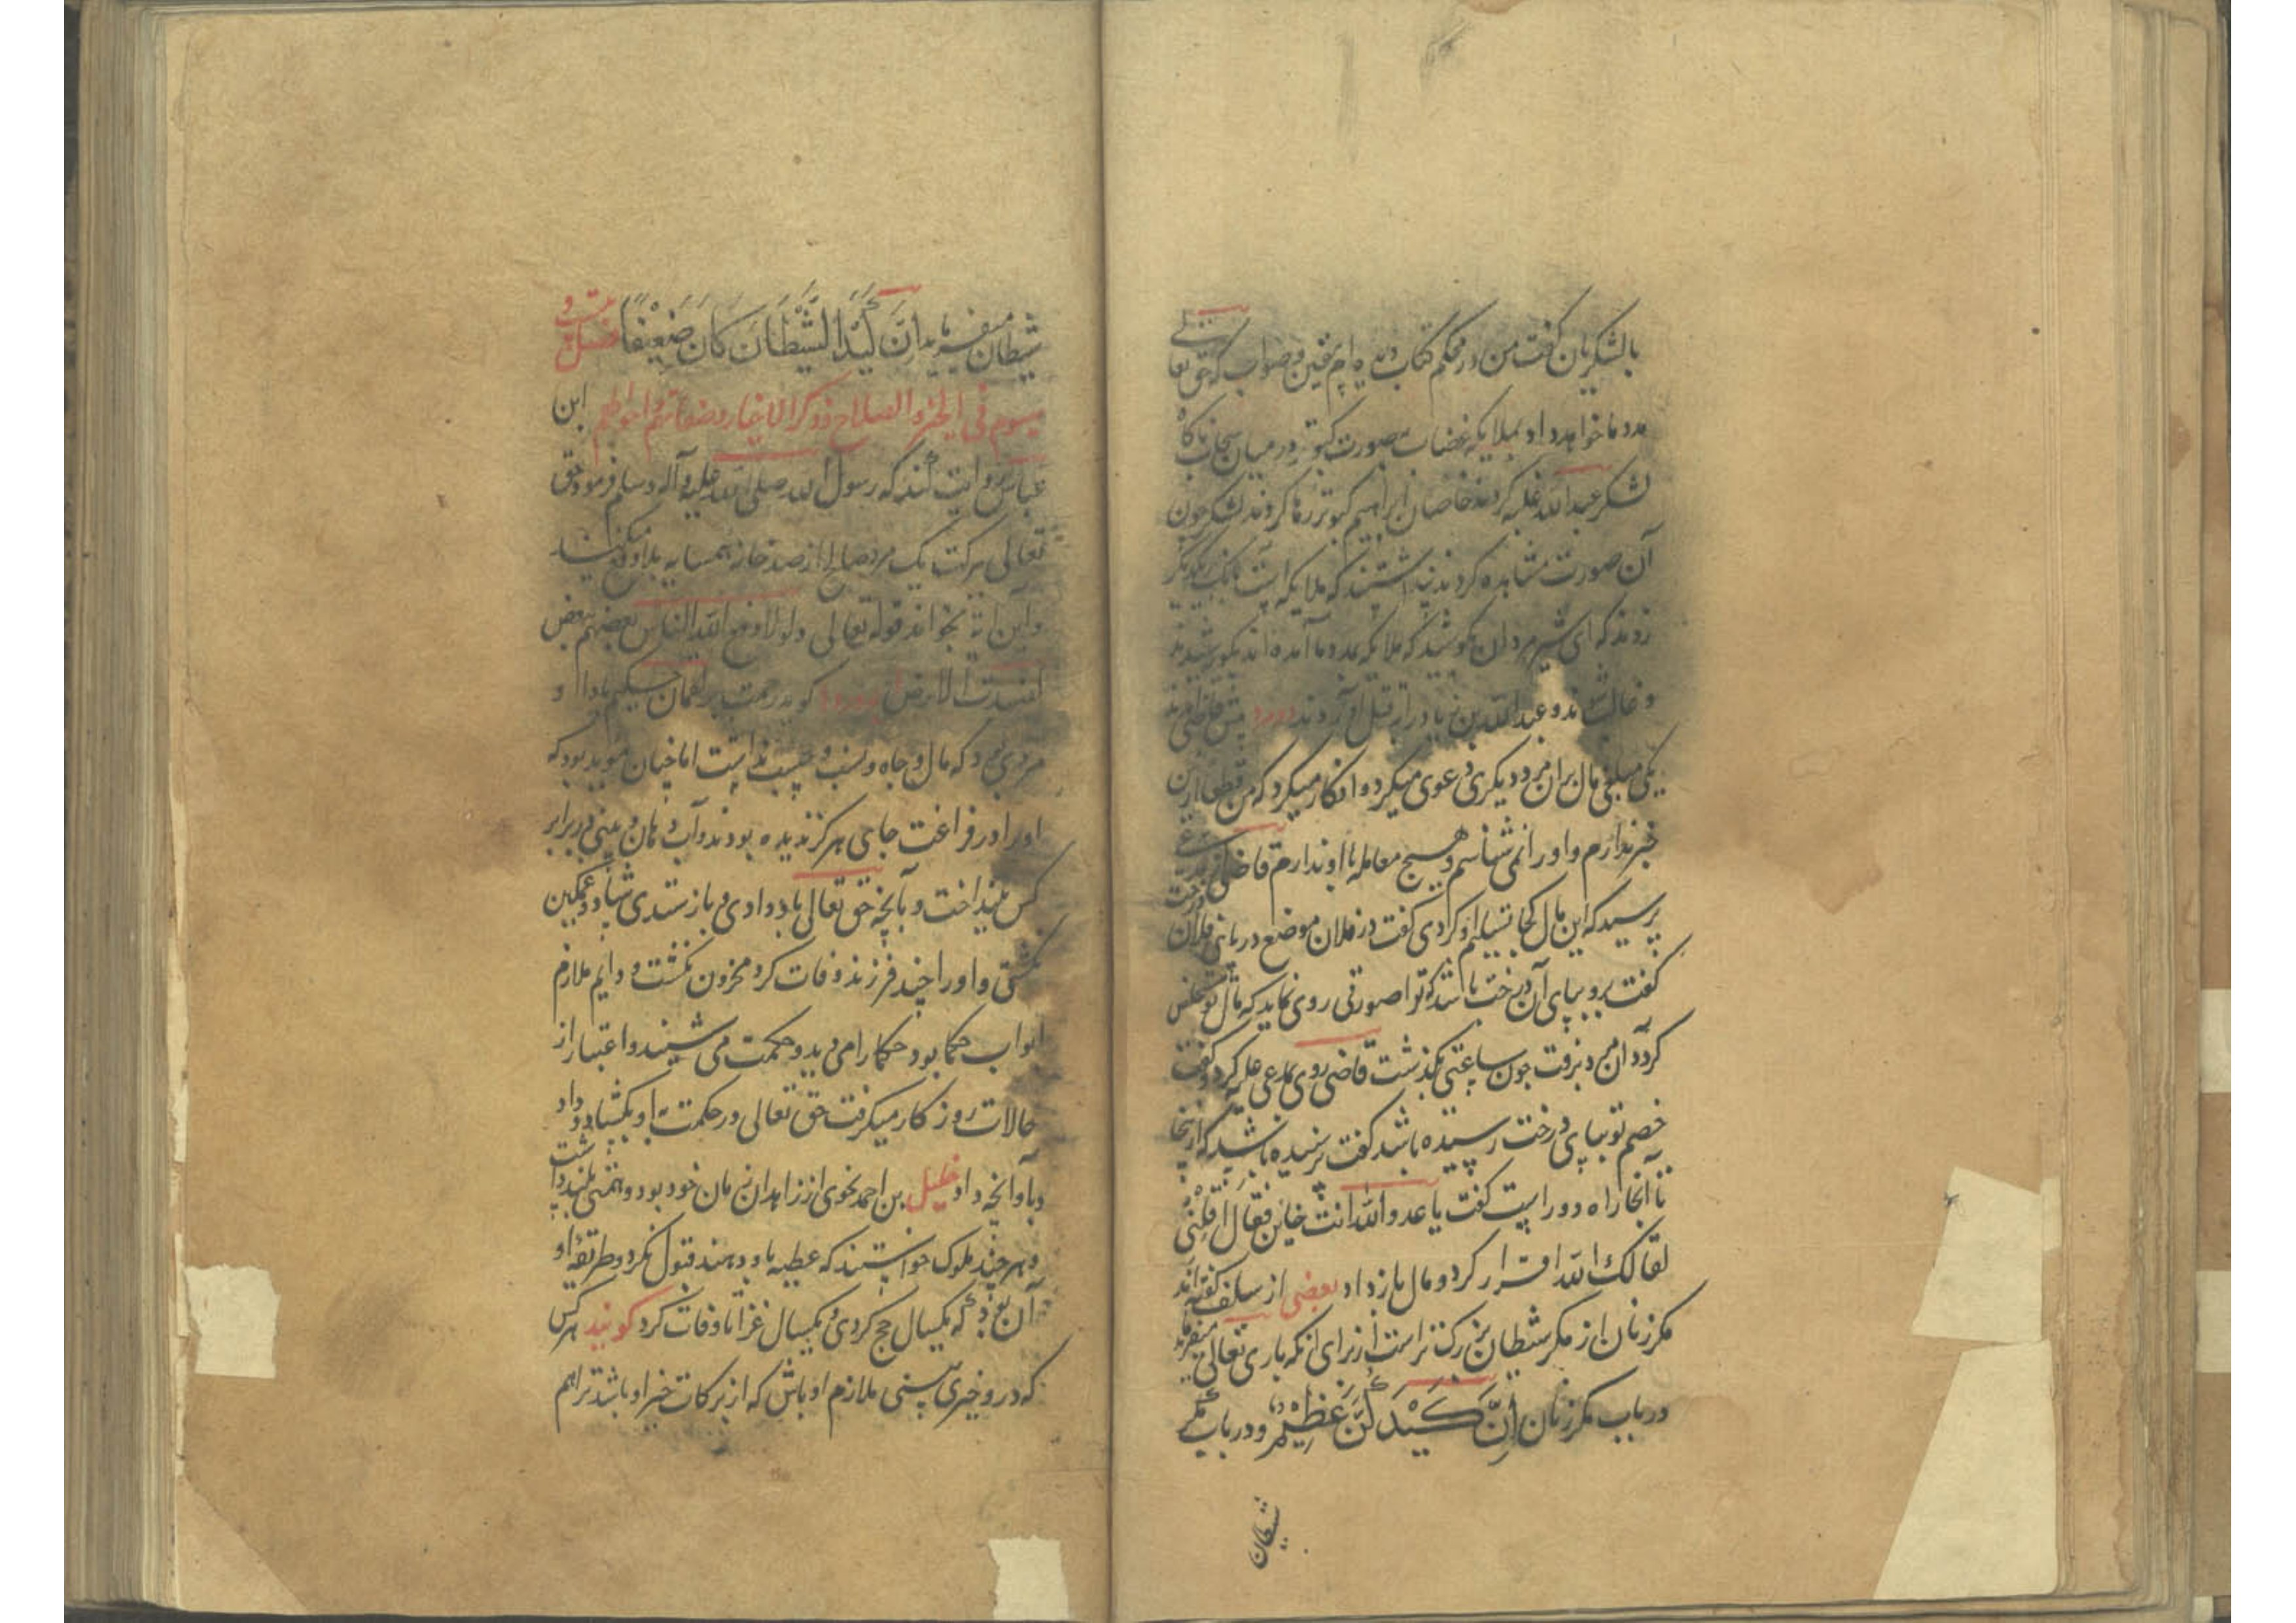 بالشکریان گفت من در محکم کتاب دیده ام بیقین و صواب که حق تعالی
مدد ما خواهد داد بملایکه غضاب بصورت کبوتر در میان سحاب ناکاه
لشکر عبدالله غلبه کردند خاصان ابراهیم کبوتر رها کردند لشکر چون
آن صورت مشاهده کردند پنداشتند که ملایکه است بانک بر یکدیکر
زدند که ای شیر مردان بکوشید که ملایکه بمدد ما آمده اند بکوشیدند
و غالب شدند و عبدالله بن زیاد را بقتل آوردند دو مرد پیش قاضی آمدند
یکی مبلغی مال بران مرد دیکری دعوی میکرد و او انکار میکرد که من قطعا ازین
خبر ندارم و او را نمی شناسم و هیچ معامله با او ندارم قاضی از مدعی
پرسید که این مال کجا تسلیم او کردی گفت در فلان موضع در پای فلان درخت
گفت برو بپای آن درخت باشد که ترا صورتی روی نماید که مال تو خلاص
کردد آن مرد برفت چون ساعتی بگذشت قاضی روی بمدعی علیه کرد و گفت
خصم تو بپای درخت رسیده باشد گفت نرسیده باشد که از اینجا
تا آنجا راه دور است گفت یا عدو الله انت خاین فقال اقلنی
اقالک الله اقرار کرد و مال باز داد بعضی از سلف گفته اند
مکر زنان از مکر شیطان بزرک تر است از برای آنکه باری تعالی میفرماید
در باب مکر زنان اِنَّ کَیْدَکُنَّ عَظِیْمٌ و در باب مکر
شیطان
شیطان میفرماید اِنَّ کَیْدَ الشَّیْطَانَ کَانَ ضَعِیْفًا فصل بیست و
سوم فی الخیر و الصلاح و ذکر الاخیار و صفاتهم و احوالهم ابن
عباس روایت کند که رسول الله صلی الله علیه و آله و سلم فرمود حق
تعالی ببرکت یک مرد صالح از صد خانه همسایه بلا دفع میکند
و این آیه بخواند قوله تعالی و لولا دفع الله الناس بعضهم ببعض
لفسدت الارض گوید رحمت بر لقمان حکیم باد او
مردی بود که مال و جاه و نسب و حسب نداشت اما چنان موید بود که
او را در فراغت جای هرکز ندیده بودند و آب دهان و بینی در برابر
کس نینداخت و بآنچه حق تعالی باو دادی و باز ستدی شاد و غمکین
نکشتی و او را چند فرزند وفات کرد محزون نکشت و دایم ملازم
ابواب حکما بود حکما را می دید و حکمت می شنید و اعتبار از
حالات روزکار میکرفت حق تعالی در حکمت باو بکشاد و داد
باو آنچه داد خلیل بن احمد نحوی از زاهدان زمان خود بود و همتی بلند داشت
و هر چند ملوک خواستند که عطیه باو دهند قبول نکرد و طریقه او
آن بود که یکسال حج کردی و یکسال غزا تا وفات کرد گویند هر کس
که درو خیری بینی ملازم او باش که از برکات خیر او باشد ترا هم